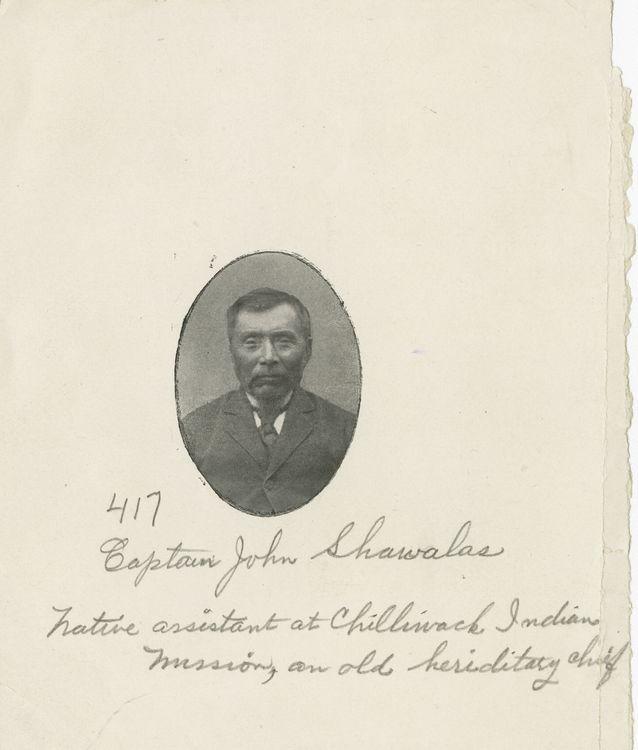 417
Captain John Shawalas
Native assistant at Chilliwack Indian
Mission, an old heriditary chief